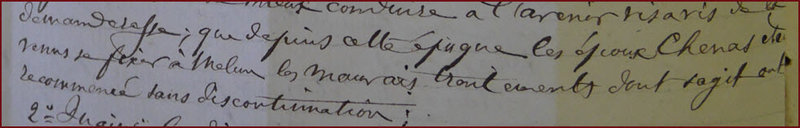 mieux conduire à l'avenir vis à vis de la
demanderesse; que depuis cette époque les époux Chenas étant
venus se fixer à Melun les mauvais traitements dont sagit ont
recommencé sans discontinuation;
2º Qu'ainsi